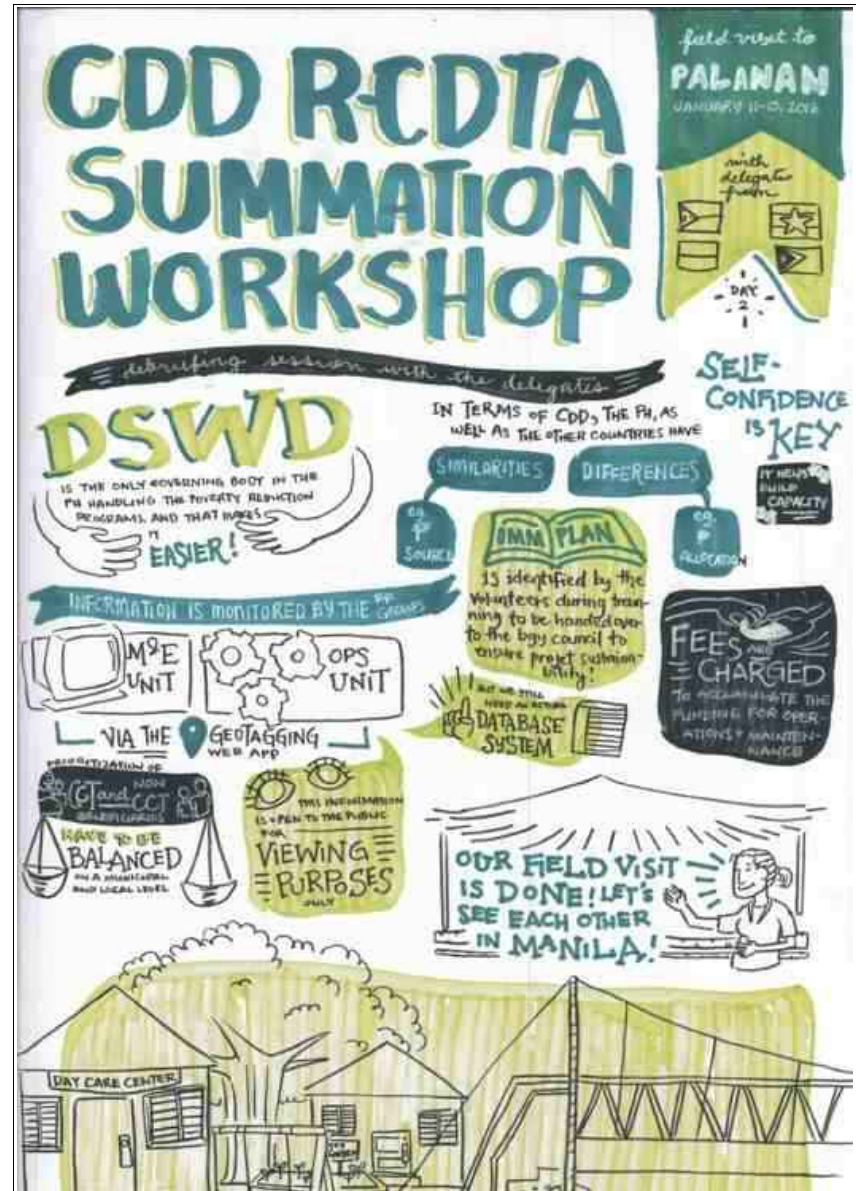 CDD R-CDTA
SUMMATION
WORKSHOP
field visit to
PALANAN
JANUARY 11-13, 2016
with
delegates
from
DAY
2
debriefing session with the delegates
DSWD
IS THE ONLY GOVERNING BODY IN THE
PH HANDLING THE POVERTY REDUCTION
PROGRAMS AND THAT MAKES
IT
EASIER!
IN TERMS OF CDD, THE PH, AS
WELL AS THE OTHER COUNTRIES HAVE
SIMILARITIES
DIFFERENCES
eg.
SOURCE
eg.
ALLOCATION
SELF-
CONFIDENCE
IS KEY
IT HELPS
BUILD
CAPACITY
OMM PLAN
is identified by the
volunteers during trai-
ning to be handed over
to the bgy council to
ensure projet sustaina-
bility!
INFORMATION IS MONITORED BY THE
M&E
UNIT
OPS
UNIT
VIA THE GEOTAGGING
WEB APP
BUT WE STILL
NEED AN ACTUAL
DATABASE
SYSTEM
FEES ARE
CHARGED
TO ACCOMMODATE THE
FUNDING FOR OPER-
ATIONS & MAINTEN-
NANCE
PRIORITIZATION OF
CCT and NON
CCT
BENEFICIARIES
HAVE TO BE
BALANCED
ON A MUNICIPAL
AND LOCAL LEVEL
THIS INFORMATION
IS OPEN TO THE PUBLIC
FOR
VIEWING
PURPOSES
ONLY
OUR FIELD VISIT
IS DONE! LET'S
SEE EACH OTHER
IN MANILA!
DAY CARE CENTER